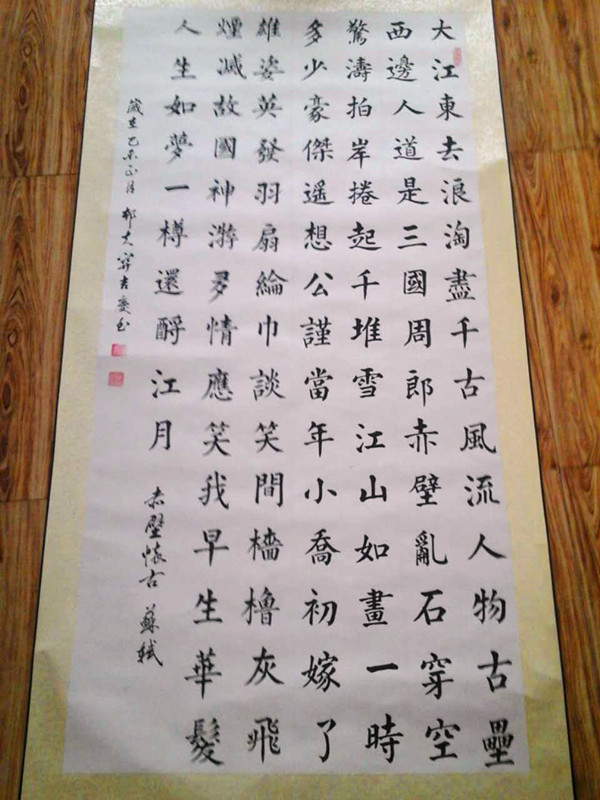 大江東去浪淘盡千古風流人物古壘
西邊人道是三國周郎赤壁亂石穿空
驚濤拍岸捲起千堆雪江山如畫一時
多少豪傑遙想公謹當年小喬初嫁了
雄姿英發羽扇綸巾談笑間檣櫓灰飛
煙滅故國神游多情應笑我早生華髮
人生如夢一樽還酹江月 赤壁懷古 蘇軾
歲在乙未正月